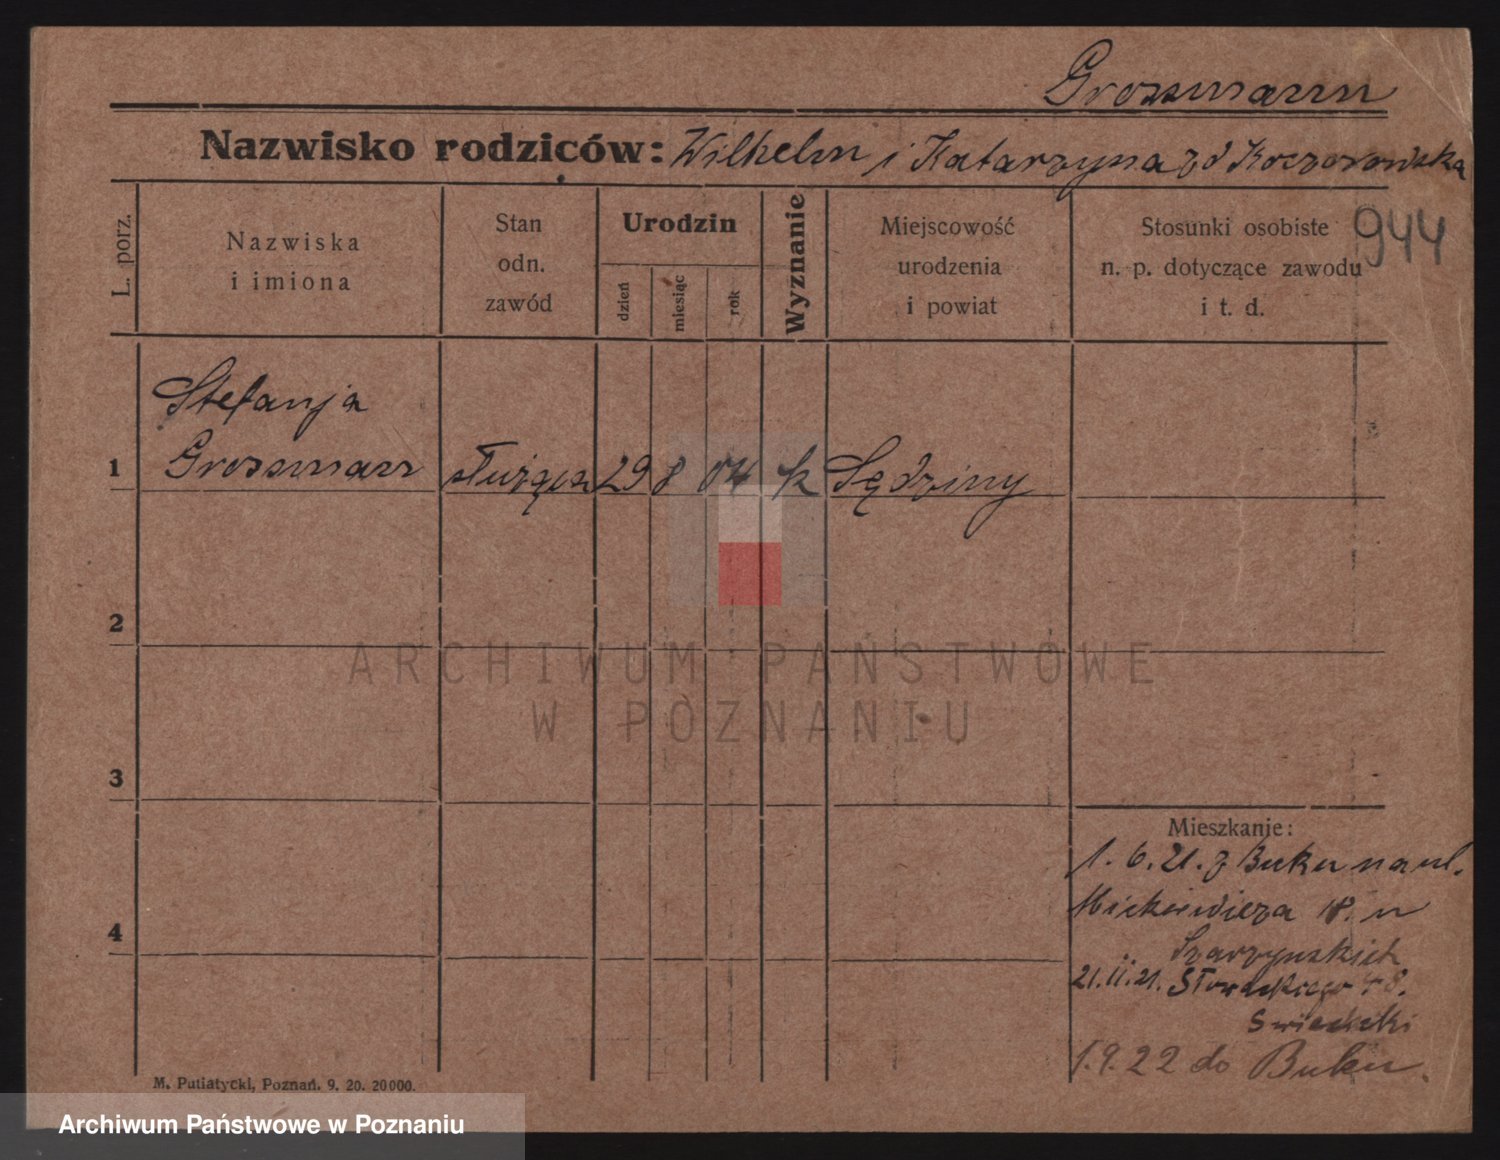 Grossmann
Nazwisko rodziców: Wilhelm i Katarzyna z d Koczorowska
L. porz.
Nazwiska
i imiona
Stan
odn.
zawód
Urodzin
dzień
miesiąc
rok
Wyznanie
Miejscowość
urodzenia
i powiat
Stosunki osobiste
n. p. dotyczące zawodu
i t. d.
944
Stefanja
1 Grossmann służąca 29 8 04 k Sędziny
2
3
4
Mieszkanie:
1. 6. 21. z Buku na ul.
Mickiewicza 18. u
Szarzyńskich
21.11.21. Słowackiego 48.
Swiecicki
1.9.22 do Buku.
M. Putiatycki, Poznań. 9. 20. 20000.
ARCHIWUM PAŃSTWOWE
W POZNANIU
Archiwum Państwowe w Poznaniu